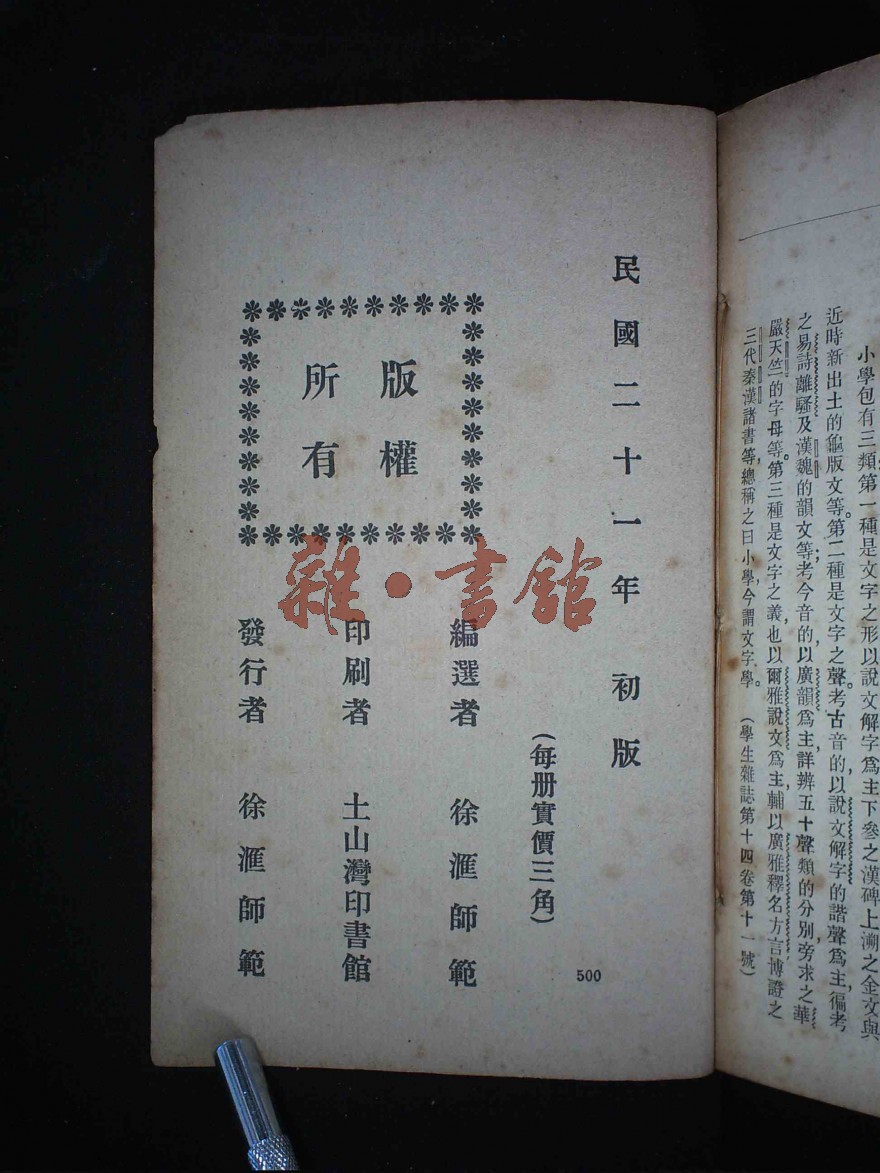 小學包有三類第一種是文字之形以說文解字爲主下參之漢碑上溯之金文與
近時新出土的龜版文等。第二種是文字之聲考古音的以說文解字的諧聲爲主,徧考
之易詩離騷及漢魏的韻文等;考今音的以廣韻爲主,詳辨五十聲類的分別,旁求之華
嚴天竺的字母等。第三種是文字之義也以爾雅說文爲主,輔以廣雅釋名方言博證之
三代秦漢諸書等,總稱之曰小學,今謂文字學。(學生雜誌第十四卷第十一號)
民國二十一年 初版
(每册實價三角)
500
版權
所有
編選者 徐滙師範
印刷者 土山灣印書館
發行者 徐滙師範
雜·書館